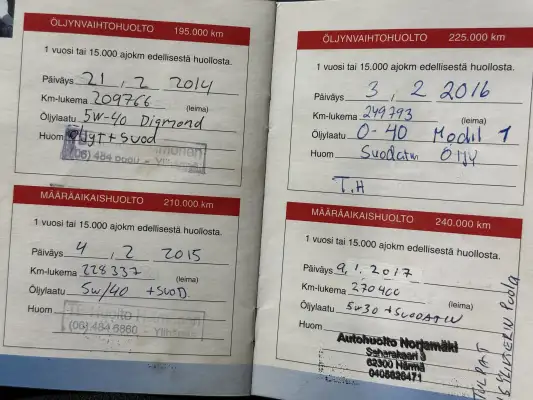 ÖLJYNVAIHTOHUOLTO 195.000 km
1 vuosi tai 15.000 ajokm edellisestä huollosta.
Päiväys 21 . 2 2014
Km-lukema 209766 (leima)
Öljylaatu 5W-40 Digmond
Huom Öljyt + Suod
(06) 484 6660 - Ylihärmä
MÄÄRÄAIKAISHUOLTO 210.000 km
1 vuosi tai 15.000 ajokm edellisestä huollosta.
Päiväys 4 . 2 2015
Km-lukema 228337 (leima)
Öljylaatu 5W/40 + SUOD.
Huom
(06) 484 6660 -
ÖLJYNVAIHTOHUOLTO 225.000 km
1 vuosi tai 15.000 ajokm edellisestä huollosta.
Päiväys 3 . 2 2016
Km-lukema 249793 (leima)
Öljylaatu 0-40 Mobil 1
Huom Suodatin Öljy
T.H
MÄÄRÄAIKAISHUOLTO 240.000 km
1 vuosi tai 15.000 ajokm edellisestä huollosta.
Päiväys 9.1.2017
Km-lukema 270400 (leima)
Öljylaatu 5W30 + SUODATIN
Huom
Autohuolto Norjamäki
Saharakaari 3
62300 Härmä
0405626471
TULPAT